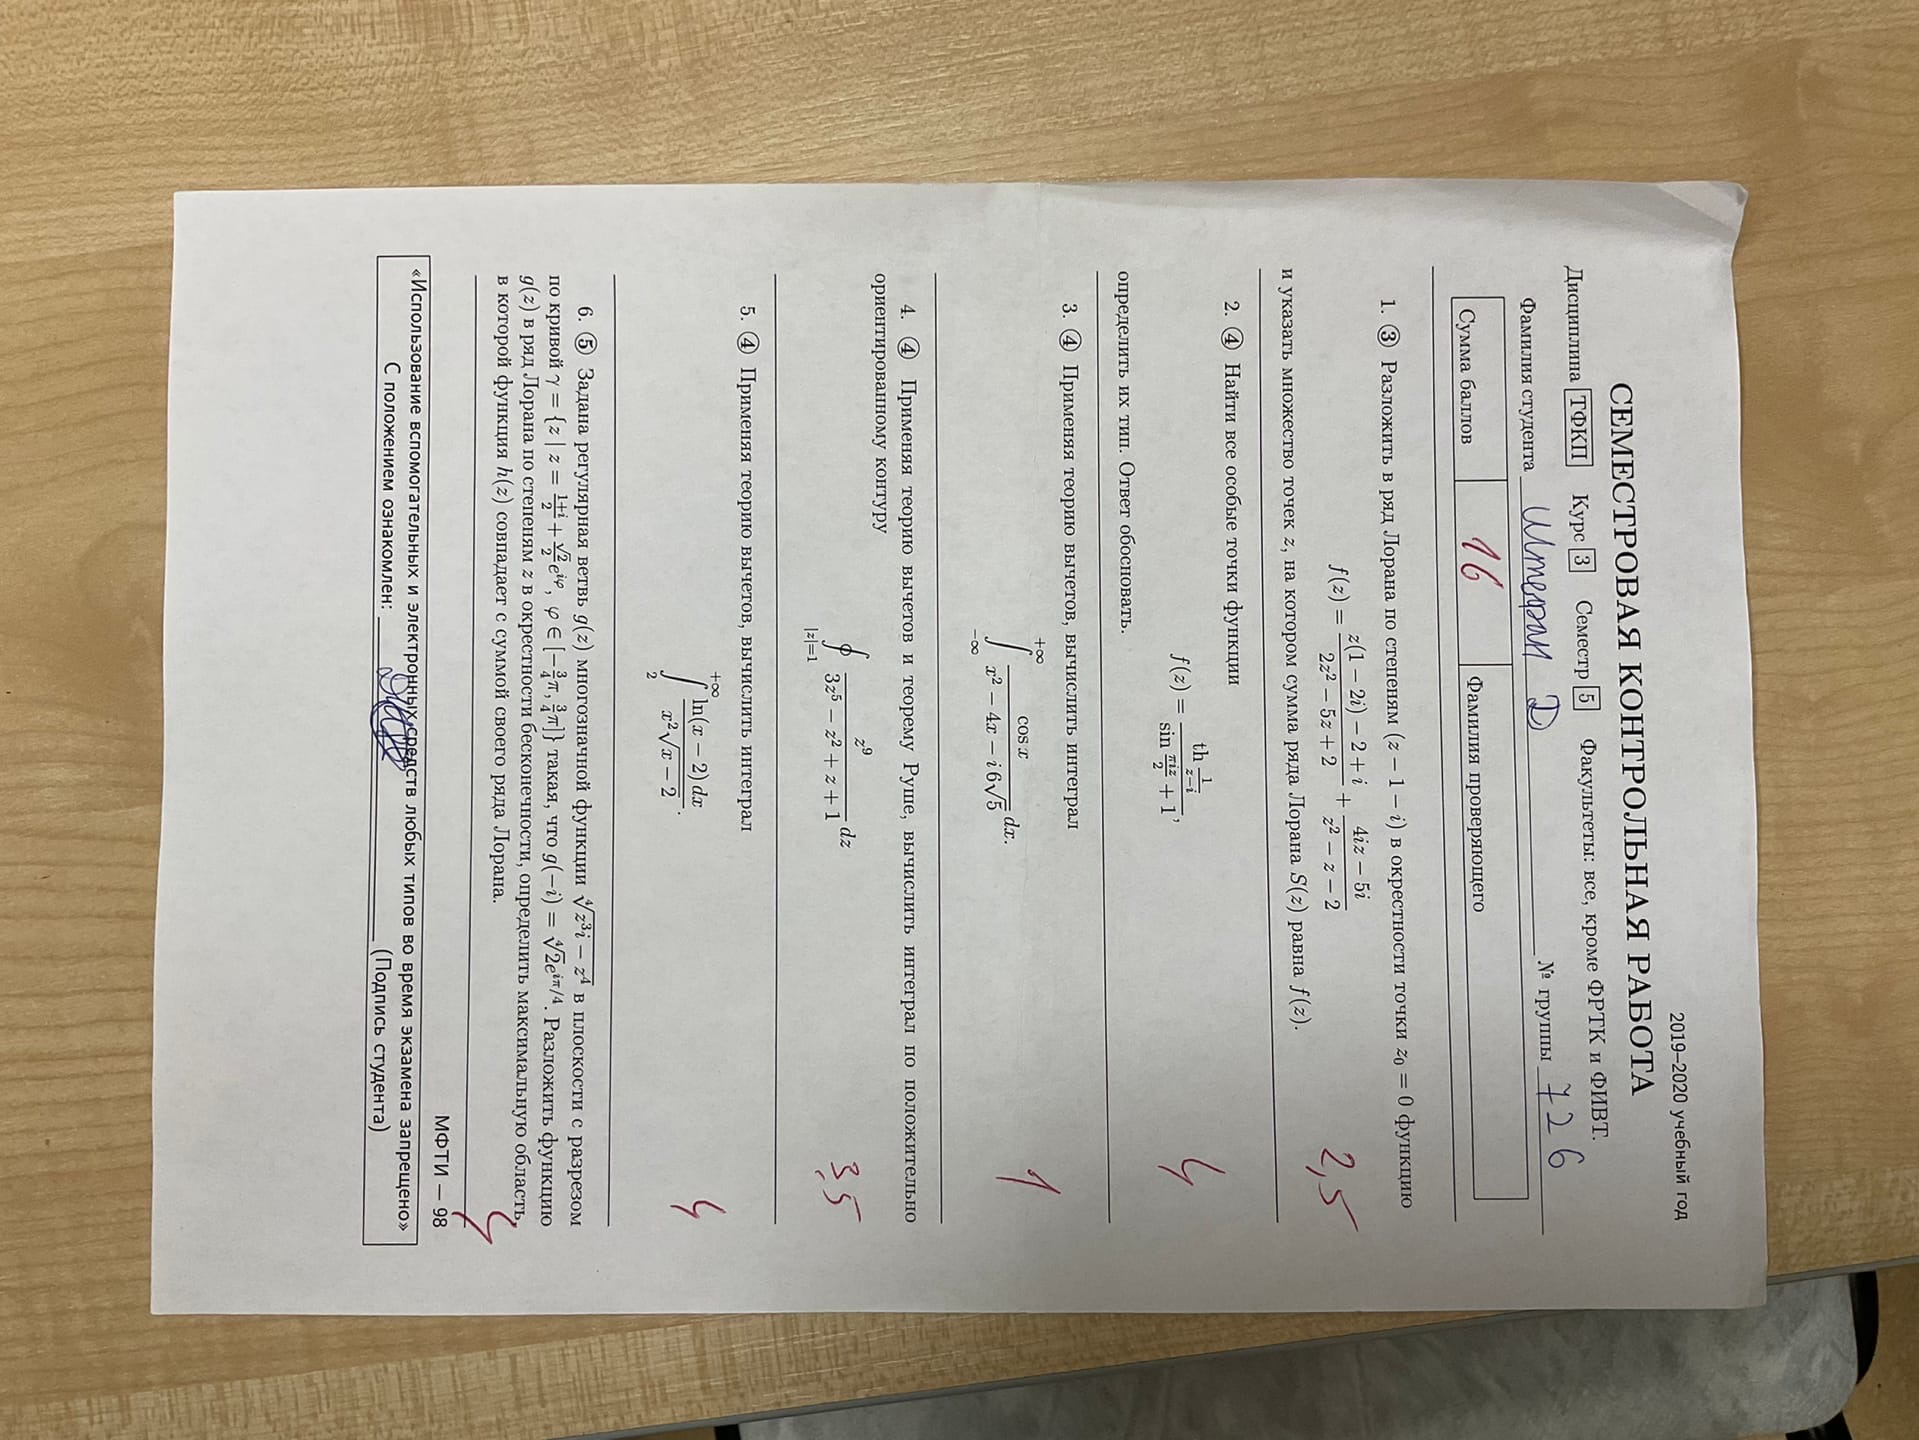 2019–2020 учебный год
СЕМЕСТРОВАЯ КОНТРОЛЬНАЯ РАБОТА
Дисциплина ТФКП Курс 3 Семестр 5 Факультеты: все, кроме ФРТК и ФИВТ.
Фамилия студента Штефан Д № группы 726
Сумма баллов 16 Фамилия проверяющего
1. ③ Разложить в ряд Лорана по степеням (z − 1 − i) в окрестности точки z₀ = 0 функцию
f(z) = (z(1 − 2i) − 2 + i)/(2z² − 5z + 2) + (4iz − 5i)/(z² − z − 2)
2,5
и указать множество точек z, на котором сумма ряда Лорана S(z) равна f(z).
2. ④ Найти все особые точки функции
f(z) = (th 1/(z−i))/(sin πiz/2 + 1),
4
определить их тип. Ответ обосновать.
3. ④ Применяя теорию вычетов, вычислить интеграл
∫_{−∞}^{+∞} cos x/(x² − 4x − i 6√5) dx.
1
4. ④ Применяя теорию вычетов и теорему Руше, вычислить интеграл по положительно
ориентированному контуру
∮_{|z|=1} z⁹/(3z⁵ − z² + z + 1) dz
3,5
5. ④ Применяя теорию вычетов, вычислить интеграл
∫_{2}^{+∞} ln(x − 2) dx/(x²√(x − 2)).
4
6. ⑤ Задана регулярная ветвь g(z) многозначной функции ⁴√(z³i − z⁴) в плоскости с разрезом
по кривой γ = {z | z = (1+i)/2 + (√2/2)e^{iφ}, φ ∈ [−3/4π, 3/4π]} такая, что g(−i) = ⁴√2e^{iπ/4}. Разложить функцию
g(z) в ряд Лорана по степеням z в окрестности бесконечности, определить максимальную область,
в которой функция h(z) совпадает с суммой своего ряда Лорана.
4
МФТИ — 98
«Использование вспомогательных и электронных средств любых типов во время экзамена запрещено»
С положением ознакомлен: (Подпись студента)